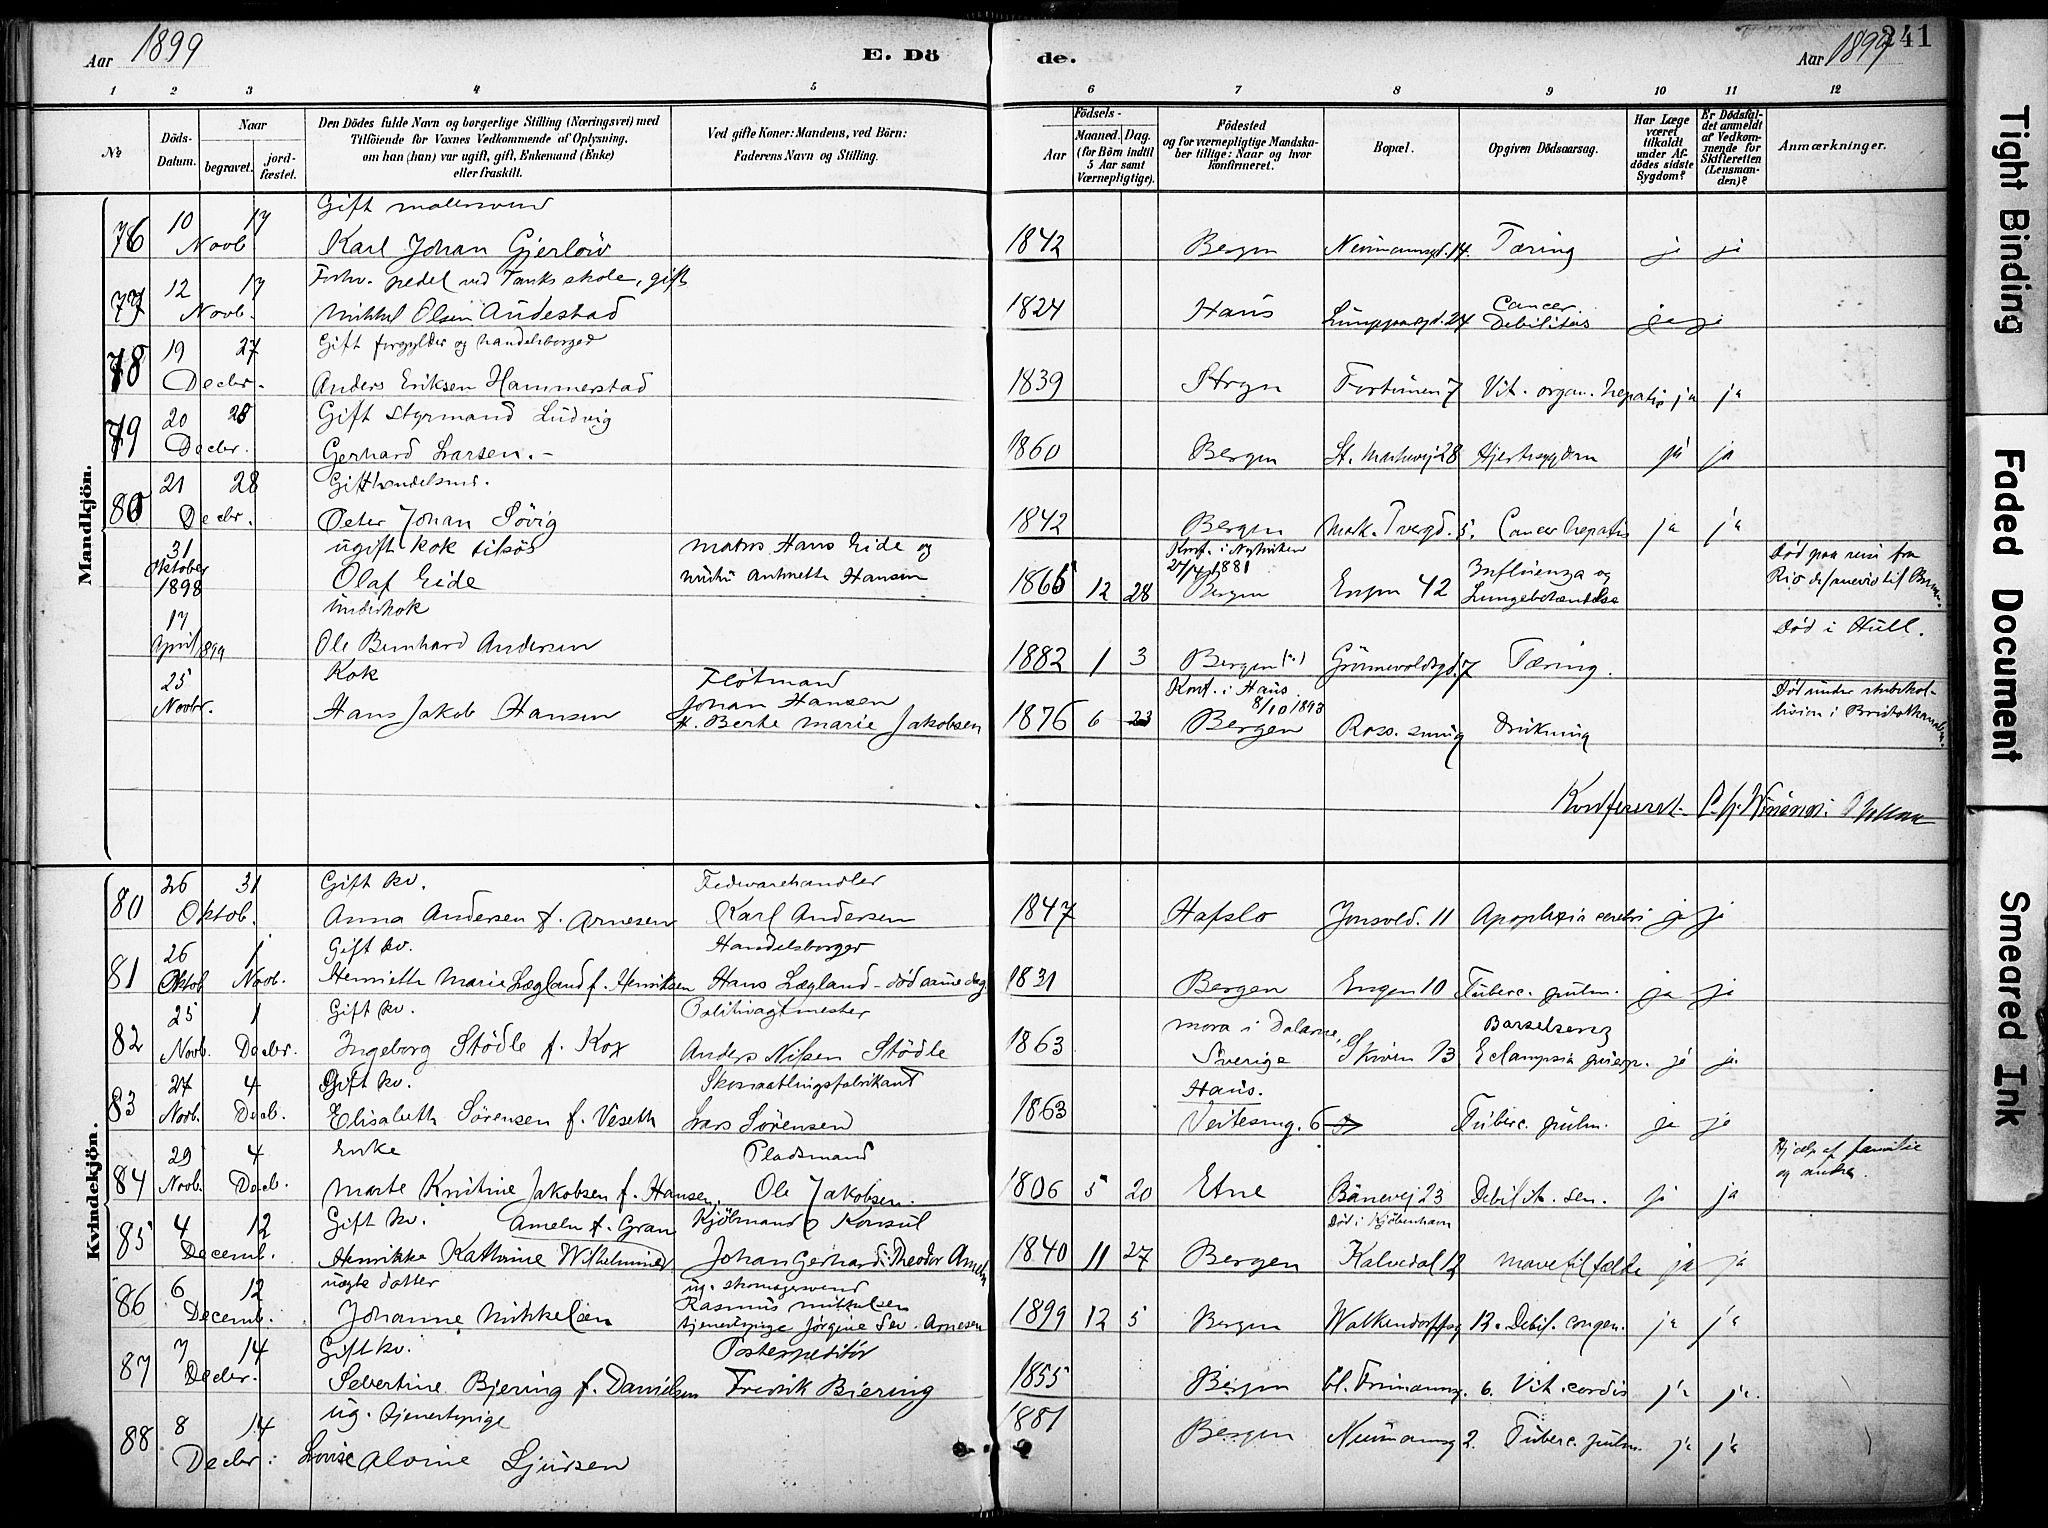 Aar 1899
E. Dö
de.
Aar 1899
241
1 2 3 4 5 6 7 8 9 10 11 12
№
Döds-Datum.
Naar
begravet.
jord-fæstet.
Den Dödes fulde Navn og borgerlige Stilling (Næringsvei) med
Tilföiende for Voxnes Vedkommende af Oplysning.
om han (hun) var ugift, gift, Enkemand (Enke)
eller fraskilt.
Ved gifte Koner: Mandens, ved Börn:
Faderens Navn og Stilling.
Födsels-
Aar
Maaned. Dag.
(for Börn indtil
5 Aar samt
Værnepligtige).
Födested
og for værnepligtige Mandska-
ber tillige: Naar og hvor
konfirmeret.
Bopæl.
Opgiven Dödsaarsag.
Har Læge
været
tilkaldt
under Af-
dödes sidste
Sygdom?
Er Dödsfal-
det anmeldt
af Vedkom-
mende for
Skifteretten
(Lensman-
den)?
Anmærkninger.
Mandkjön.
Gift malersvend
76 10 17 Novb Karl Johan Gjerlöw 1842 Bergen Neumannsgd. 14. Tæring ja ja
Forhv. pedel ved Tanks skole, gift
77 12 17 Novb. Mikkel Olsen Audestad 1824 Haus 24 Cancer Debilitas ja ja
Gift forgylder og handelsborger
78 19 27 Decbr. Anders Eriksen Hammerstad 1839 Stryn Fortunen 7 Vit. organ. hepatis ja ja
Gift Styrmand Ludvig
79 20 28 Decbr. Gerhard Larsen. - 1860 Bergen St. Markevej 28 Hjertesygdom ja ja
Gift handelsmd.
80 21 28 Decbr. Peter Johan Sövig 1842 Bergen Mark. Tvergd. 5. Cancer hepatis ja ja
31 Oktober 1898 ugift kok tilsös Olaf Eide
matros Hans Eide og
hustru Antonette Hansen
1865 12 28 Konf. i Nykirken 27/4 1881 Bergen Engen 42 Influenza og Lungebetændelse
Död paa reise fra
Rio de Janeiro til
17 April 1899 Underkok
Ole Bernhard Andersen 1882 1 3 Bergen (?) Grönnevoldsgd. 7 Tæring.
Död i Hull.
25 Novbr. Kok
Hans Jakob Hansen
Flötmand
Johan Hansen
H. Berte Marie Jakobsen
1876 6 23 Konf. i Haus 8/10 1893 Bergen Ross. smug Drukning
Död under skibskol-
lision i Bristolkanalen.
Konfereret.
Kvindekjön.
Gift kv. Fedevarehandler
80 26 31 Oktob. Anna Andersen f. Arnesen Karl Andersen 1847 Hafslo Jonsvold. 11 Apoplexia cerebri ja ja
Gift kv. Handelsborger
81 26 Oktob 1 Novb. Henriette Marie Lægland f. Henriksen Hans Lægland - död samme dag. 1831 Bergen Engen 10 Tuberc. pulm. ja ja
Gift kv. Politivagtmester
82 25 Novb. 1 Decbr. Ingeborg Stödle f. Kox Anders Nilsen Stödle 1863 Mora i Dalarne, Sverige Skiven 13 Barselseng Eclampsia puerp. ja ja
Gift kv. Skomagtlingsfabrikant
83 27 Novb. 4 Decb. Elisabeth Sörensen f. Veseth Lars Sörensen 1863 Haus. Veitesmug. 6 Tuberc. pulm. ja ja
Enke Pladsmand
84 29 Novb. 4 Decb. Marte Kristine Jakobsen f. Hansen. Ole Jakobsen. 1806 5 20 Etne Banevej 23 Debilit. sen. ja ja
Hjælp af familie
og andre.
Gift kv. Ameln f. Gran Kjöbmand & Konsul
85 4 12 Decemb. Henrikke Kathrine Wilhelmine Johan Gerhard Theodor Ameln 1840 11 27 Bergen Död i Kjöbenhavn Kalvedal 12 Mavetilfælde ja ja
uægte datter
86 6 12 Decemb. Johanne Mikkelsen
ug. skomagersvend
Rasmus Mikkelsen
tjenestepige Jörgine Sev. Arnesen
1899 12 5 Bergen Walkendorffsg 13. Debil. congen. ja ja
Gift kv. Postexpeditör
87 7 14 Decbr. Severtine Bjering f. Danielsen Fredrik Biering 1855 Bergen 6. Vit. cordis ja ja.
ug. tjenestepige
88 8 14 Decbr: Lovise Alvine Ljursen 1881 Bergen Neumannsg 2. Tuberc. pulm. ja ja
Tight Binding
Faded Document
Smeared Ink